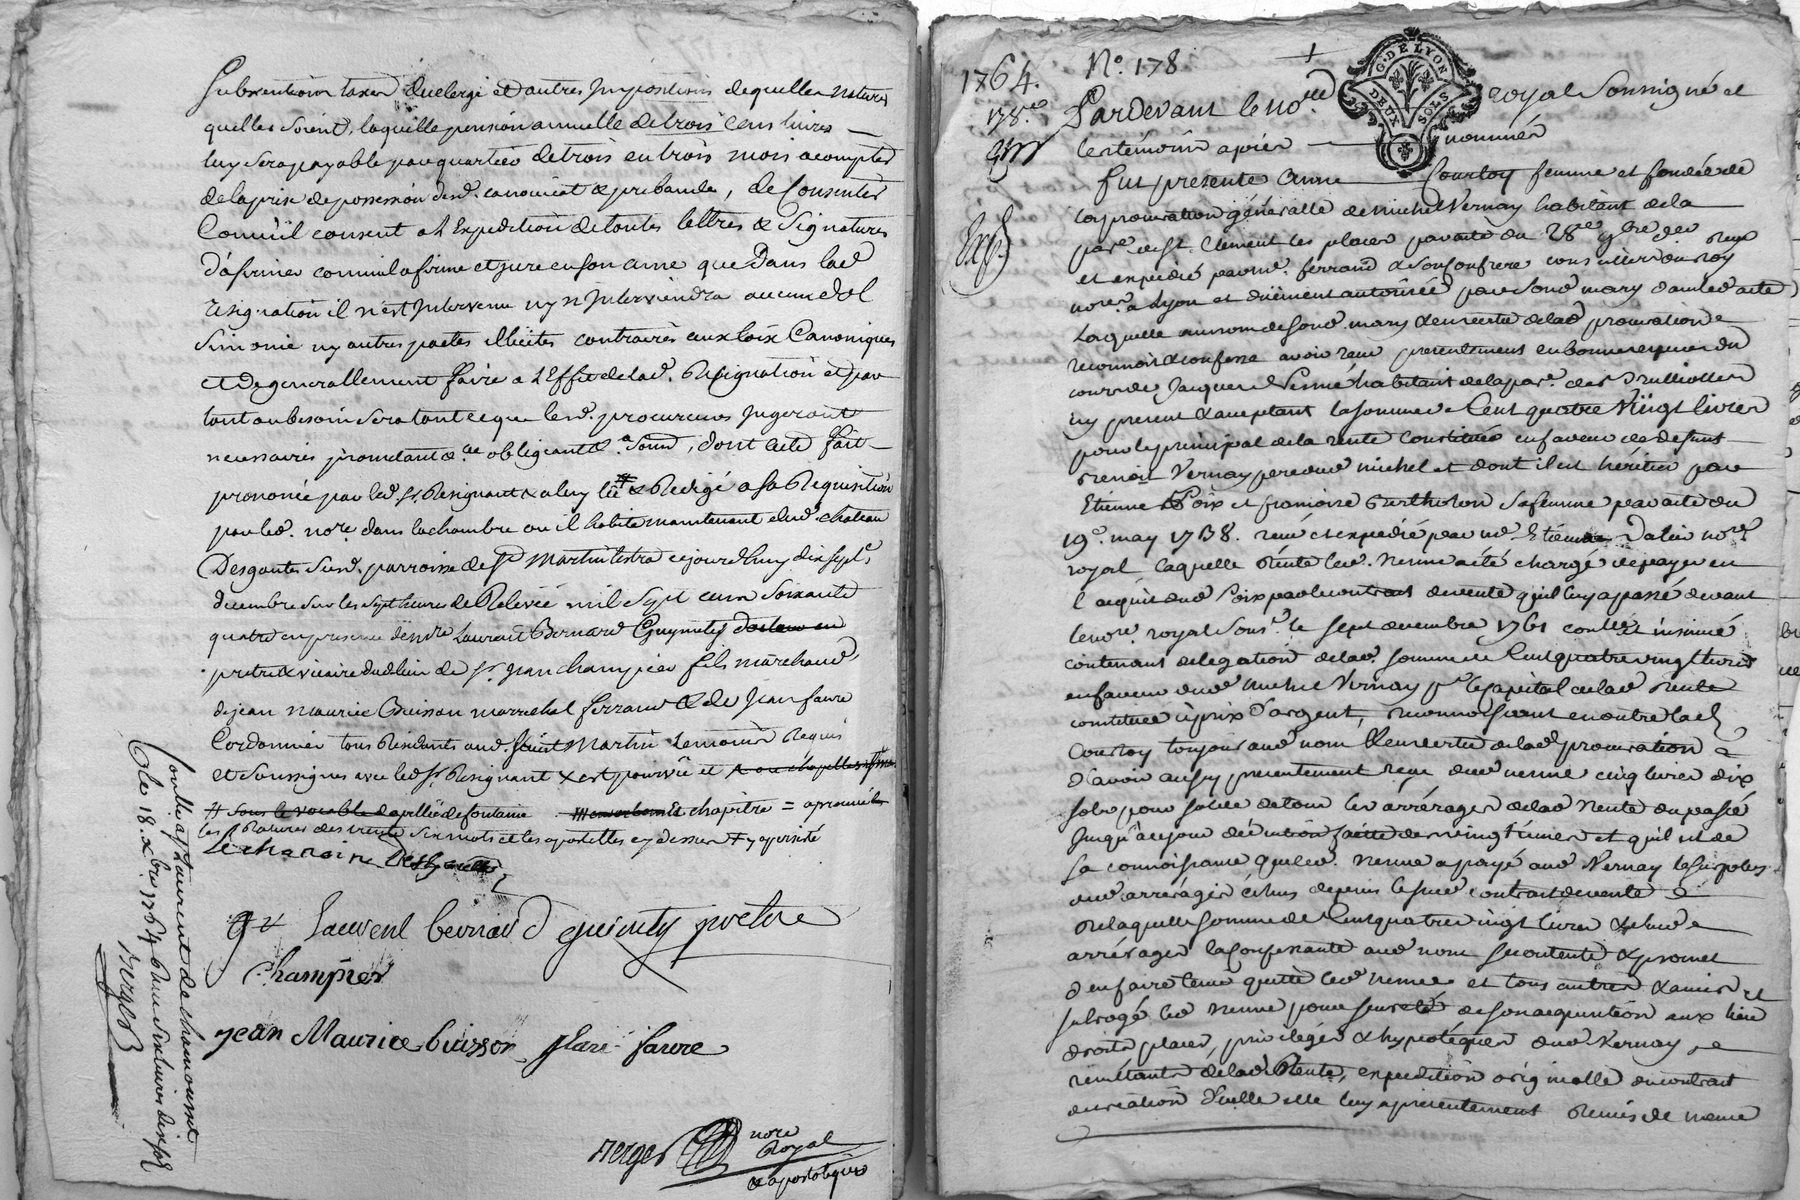 Subvention taxes du clergé et autres Impositions de quelles natures
quelles soient, laquelle pension annuelle de trois cens livres
luy sera payable par quartier de trois en trois mois a compter
de la prise de possession dud. canonicat & prebande, de Consentir
Comm'il consent a l'Expedition de toutes lettres & Signatures
d'afirmer comm'il afirme et jure en son ame que Dans lad
resignation il n'est Intervenu ny n'Interviendra aucun dol
Simonie ny autres pactes illicites contraires aux loix Canoniques
et de generallement faire a l'Effet de lad. Resignation et par
tout ou besoin sera tout ce que led. procureur Jugeront
necessaires promettant & obligeant & Soum, dont acte fait
prononcé par led. sr. Resignant & a luy lû & Redigé a sa Requisition
par led. nore. dans la chambre ou il habite maintenant dud. chateau
Desgouttes Susd. parroisse de St Martin lestra ce jourd'huy dix sept
decembre sur les sept heures de Relevée mil sept cens soixante
quatre en presence de Mre Laurent Bernard Guynety
pretre & vicaire dud lieu de sr. Jean champier fils marchand
de jean maurice Buisson marechal ferrant & de Jean faure
Cordonnier tous Residants aud. Saint Martin temoins Requis
et Soussignés avec led. Sr. Resignant & est pourvû et
Sous le vocable de de fontaine chapitre = aprouvé
les Ratures des trente six mots et les apostilles cy dessus
Le chanoine Desgouttes
Laurent bernard guinety pretre
Champier
jean Maurice buisson faure
Berger nore Royal
& apostolique
Contlle a St Laurent de chamousset
le 18. xbre 1764 Reçu six livres dix sols
Berger
1764. No. 178
178.e Pardevant le no.re royal Soussigné et
les témoins apres nommés
Exp.
fut presente Anne Courtoy femme et fondée de
la procuration généralle de michel Vernay habitant de la
par.e de St. Clément les places par acte du 28e 9bre der
et expedié par me. ferrand & Son Confrere conseillers du Roy
nore. a Lyon et düement autorisée par Sond mary dans led acte
Laquelle au nom de Sond. mary & en vertu de lad procuration
reconnoit & confesse avoir reçu presentement en bonnes especes du
cours de Jacques Nesme habitant de la par.e de
icy present & acceptant la somme de Cent quatre Vingt livres
pour le principal de la rente constituée en faveur de defunt
Benoit Vernay pere dud michel et dont il est héritier par
Etienne Poix et françoise Bertholon Sa femme par acte du
19e. may 1738. reçu et expedié par me. Etienne Dalin nore
royal laquelle Rente led. Nesme a été chargé de payer en
l'acquit dud Poix par le contrat de vente qu'il luy a passé devant
le nore. royal Sous.é le sept decembre 1761 contllé et insinué
contenant delegation de lad. somme de Cent quatre vingt livres
en faveur dud michel Vernay pr le capital de lad rente
constituée à prix d'argent, reconnoissant en outre lad
Courtoy toujours aud nom & en vertu de lad procuration
d'avoir aussy presentement reçu dud nesme cinq livres dix
sols pour solde de tous les arrérages de lad Rente du passé
Jusqu'à ce jour déduction faitte des vingtiemes et qu'il est de
sa connoissance que led. nesme a payé aud Vernay le surplus
dud arrérages échus depuis le sud contrat de vente
De laquelle somme de Cent quatre vingt livres & susd
arrérages la Confessante aud nom se contente & promet
d'en faire tenir quitte led nesme et tous autres & a mis et
subrogé led nesme pour seureté de son acquisition aux lieu
droits places, privilèges & hypotéques dud. Vernay,
remettant de lad Rente, expedition originalle du contrat
de création d'icelle elle luy a presentement Remis de meme